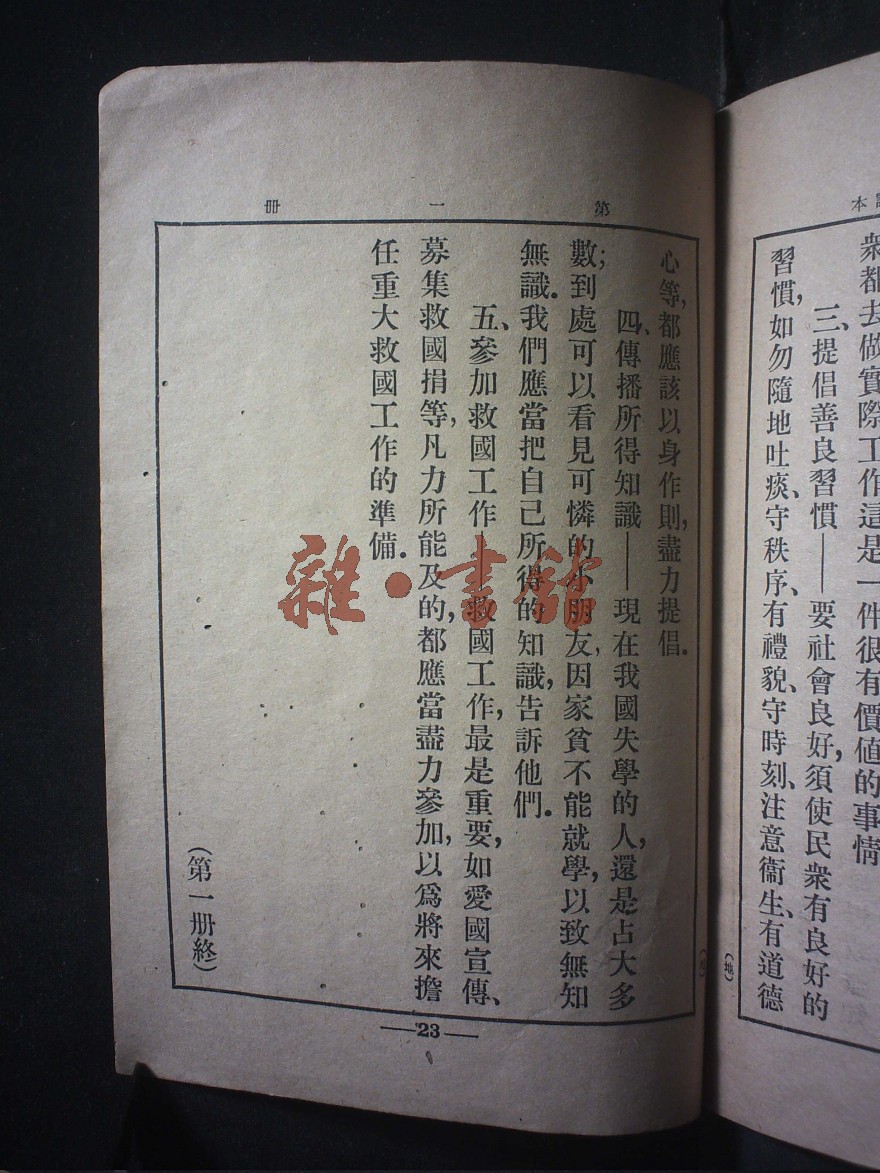 本
衆都去做實際工作這是一件很有價值的事情
三、提倡善良習慣——要社會良好,須使民衆有良好的
習慣,如勿隨地吐痰、守秩序、有禮貌、守時刻、注意衞生、有道德
(地)
第一册
心等,都應該以身作則,盡力提倡.
四、傳播所得知識——現在我國失學的人,還是占大多
數;到處可以看見可憐的小朋友,因家貧不能就學,以致無知
無識.我們應當把自己所得的知識,告訴他們.
五、參加救國工作——救國工作,最是重要,如愛國宣傳、
募集救國捐等,凡力所能及的,都應當盡力參加,以爲將來擔
任重大救國工作的準備.
(第一册終)
—23—
雜·書館